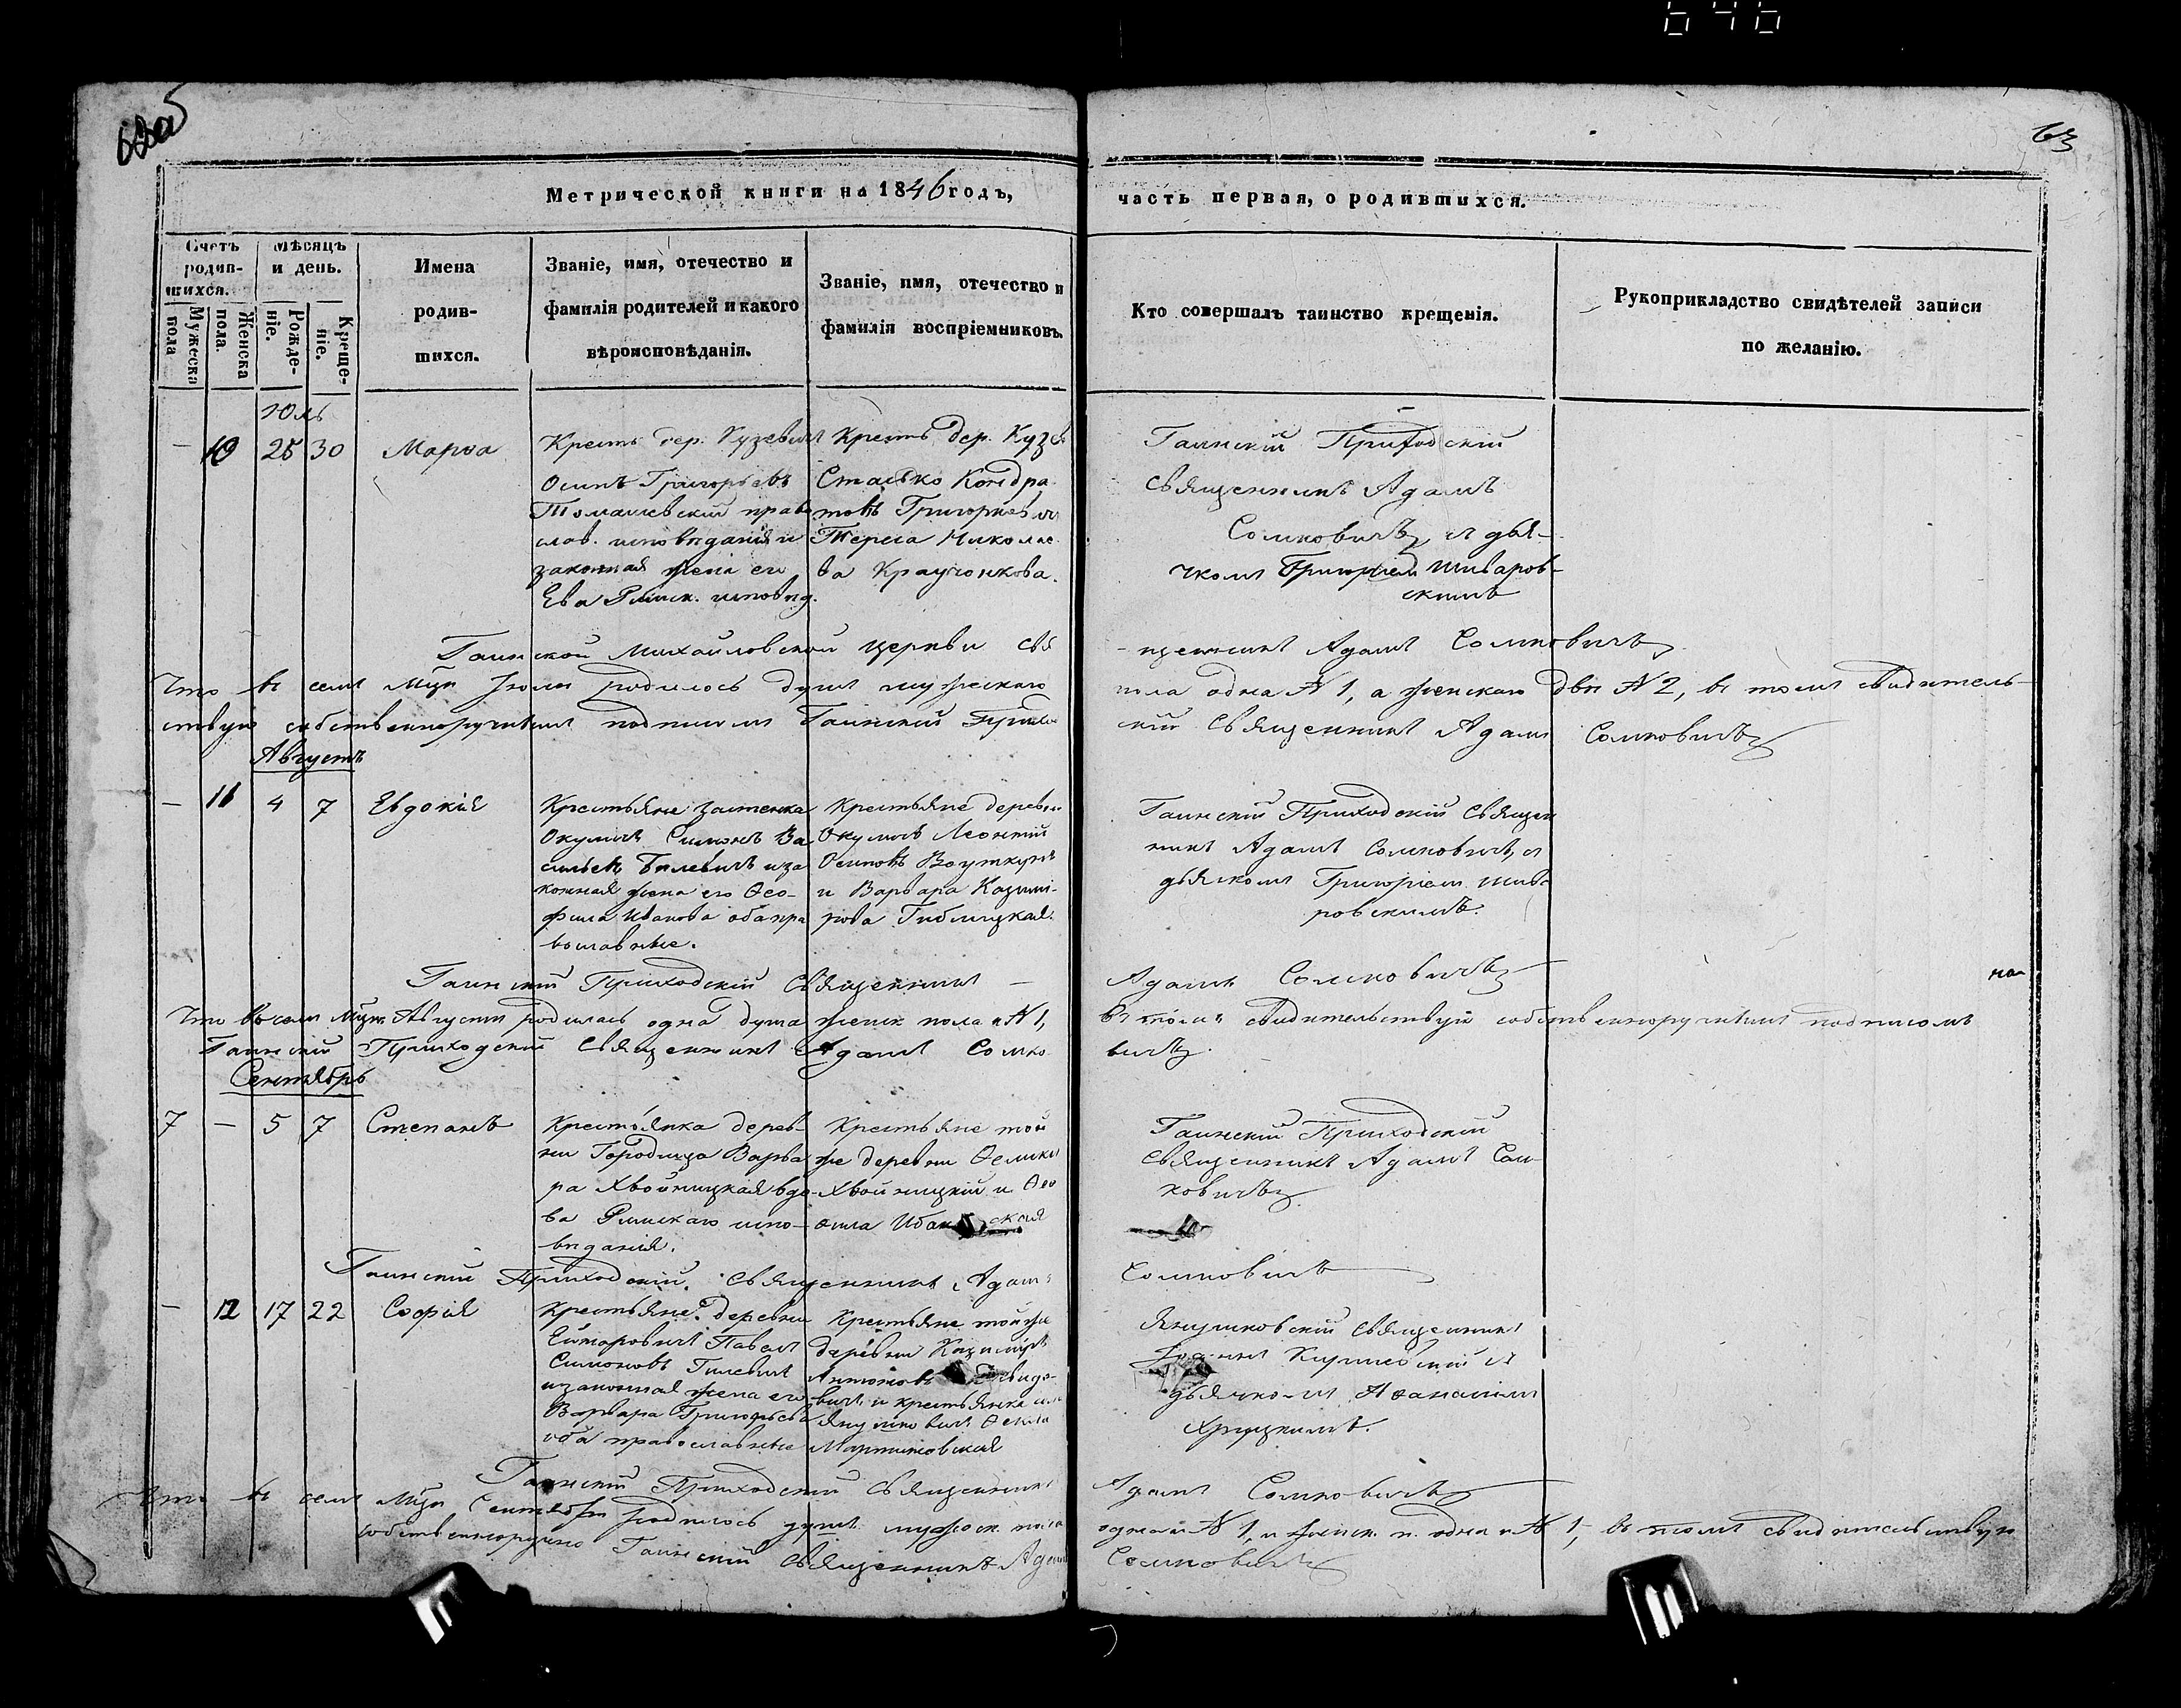 646
63
Метрической книги на 1846 годъ,
часть первая, о родившихся.
Счетъ родив-шихся.
Мужеска пола
Женска пола.
Мѣсяцъ и день.
Рожде-ніе.
Креще-ніе.
Имена
родив-
шихся.
Званіе, имя, отечество и
фамилія родителей и какого
вѣроисповѣданія.
Званіе, имя, отечество и
фамилія воспріемниковъ.
Кто совершалъ таинство крещенія.
Рукоприкладство свидѣтелей записи
по желанію.
Юль
— 10 25 30 Марѳа
Кресть. дер. Кузевичъ
Осипъ Григорьевъ
Томашевскій право
слав. исповѣданія и
законная жена его
Ева Римск. исповѣд.
Кресть. дер. Кузе
Стасько Кондра
товъ
Тереса Николае
ва
Гаинскій Приходскій
Священникъ Адамъ
Сомковичъ, и дья-
чкомъ Григоріем Шиваров-
скимъ
Гаинской Михайловской церкви свя
щенникъ Адамъ Сомковичъ
Что въ семъ Мцѣ Іюлѣ родилось душъ мужескаго
пола одна N 1, а женскаго двѣ N 2, въ томъ свидѣтель-
ствую собственноручнымъ подписомъ Гаинскій Приход
скій Священникъ Адамъ Сомковичъ
Августъ
— 11 4 7 Евдокія
Крестьяне застенка
Окуличъ Симонъ Ва
сильевъ и за
конная жена его Ѳео-
фила Иванова оба пра
вославные.
Крестьяне деревни
Леонтій
Осиповъ
и Варвара Казими-
рова
Гаинскій Приходскій Священ
никъ Адамъ Сомковичъ, и
дьячкомъ Григоріем Шива
ровскимъ.
Гаинскій Приходскій Священникъ —
Адамъ Сомковичъ
на
Что въ семъ Мцѣ Августѣ родилась одна душа женск пола N 1,
въ томъ свидѣтельствую собственноручнымъ подписомъ
Гаинскій Приходскій Священникъ Адамъ Сомко
вичъ.
Сентябрь
7 — 5 7 Степанъ
Крестьянка дерев
ни Городища Варва
ра Хвойницкая вдо-
ва Римскаго испо-
вѣданія.
Крестьяне той
же деревни
Хвойницкій и Ѳео
Гаинскій Приходскій
Священникъ Адамъ Сом
ковичъ
Гаинскій Приходскій Священникъ Адамъ
Сомковичъ
— 12 17 22 Софія
Крестьяне деревни
Павелъ
Симоновъ Гилевичъ
и законная жена его
Варвара Григорьева
оба православные
Крестьяне той же
деревни Казимиръ
Антоновъ
вичъ и крестьянка
Ѳекла
Мартиновская
Янушковскій Священникъ
Іоаннъ и
дьячкомъ Аѳанасіемъ
Гаинскій Приходскій Священникъ
Адамъ Сомковичъ
Что въ семъ Мцѣ Сентябрѣ родилось душъ мужеск. пола
одна N 1, и женск. п. одна N 1, въ томъ свидѣтельствую
собственноручно Гаинскій Священникъ Адамъ
Сомковичъ